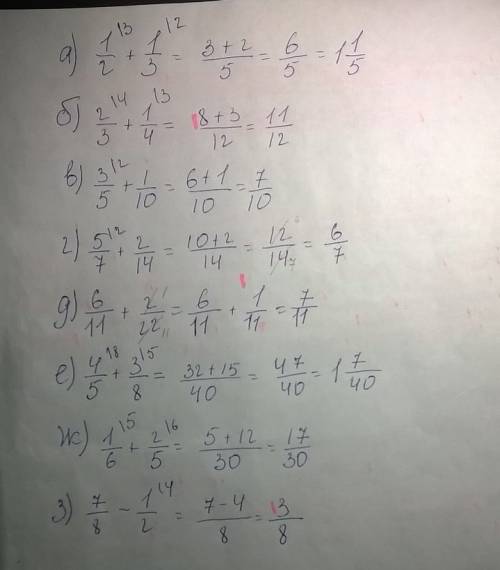 а) 1/2 \3 + 1/3 \2 = (3+2)/5 = 6/5 = 1 1/5
б) 2/3 \4 + 1/4 \3 = (8+3)/12 = 11/12
в) 3/5 \2 + 1/10 = (6+1)/10 = 7/10
г) 5/7 \2 + 2/14 = (10+2)/14 = 12/14 = 6/7
д) 6/11 + 2/22 = 6/11 + 1/11 = 7/11
е) 4/5 \8 + 3/8 \5 = (32+15)/40 = 47/40 = 1 7/40
ж) 1/6 \5 + 2/5 \6 = (5+12)/30 = 17/30
з) 7/8 - 1/2 \4 = (7-4)/8 = 3/8